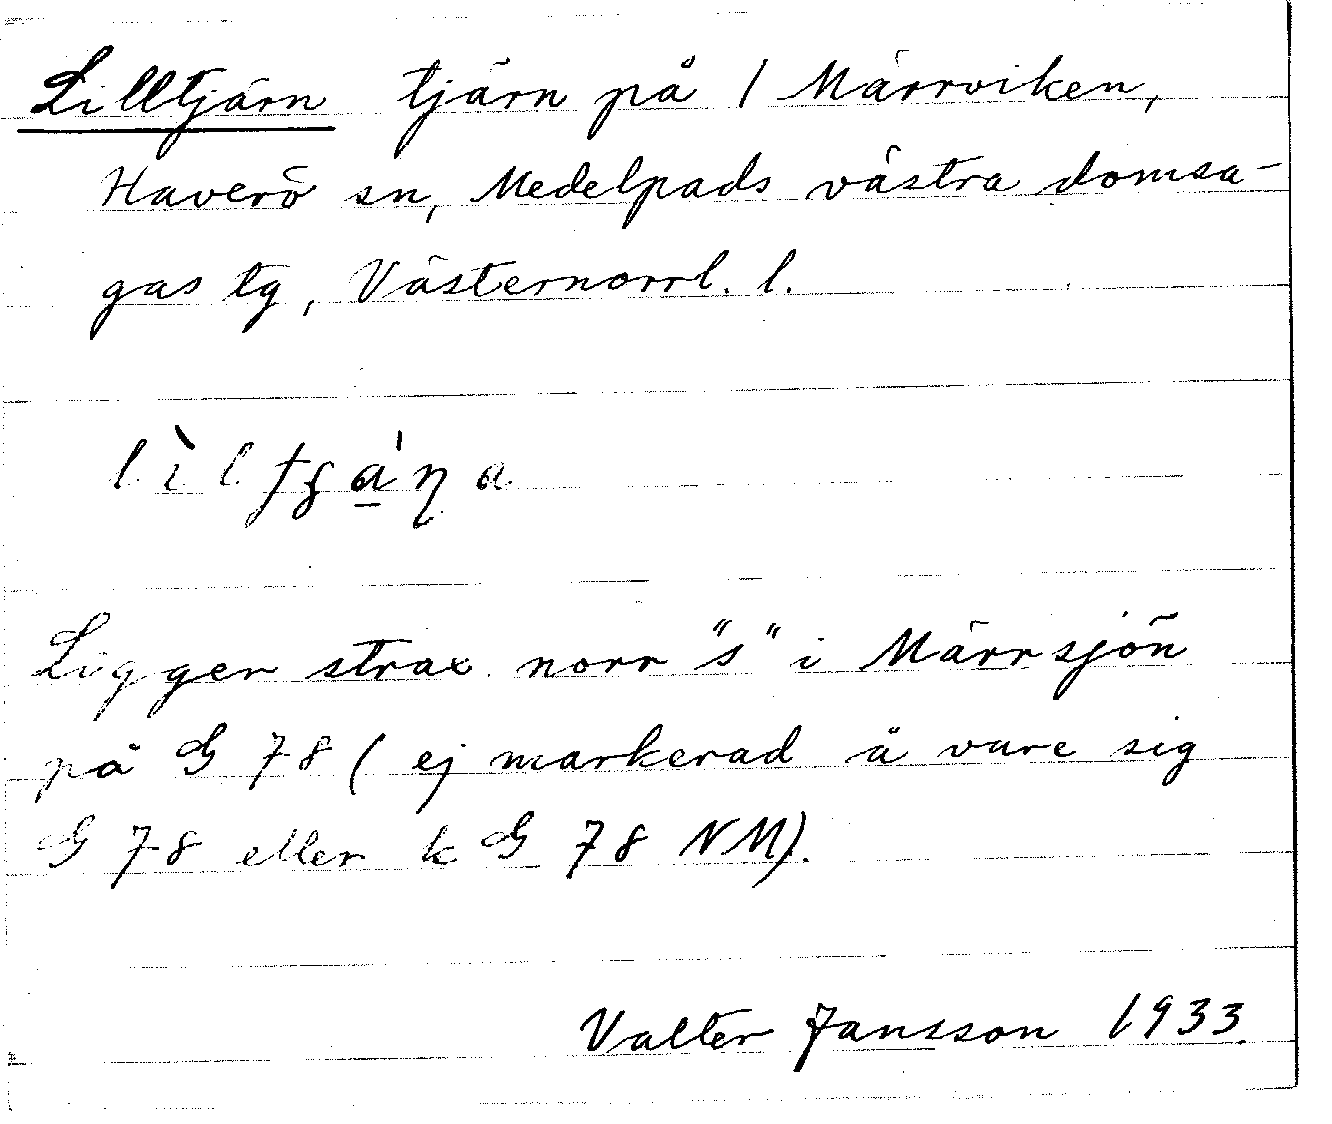 Lilltjärn tjärn på 1 Märrviken,
Haverö sn, Medelpads västra domsa-
gas tg, Västernorrl. l.
Ligger strax norr "s" i Märrsjön
på G 78 (ej markerad å vare sig
G 78 eller k G 78 NM).
Valter Jansson 1933.